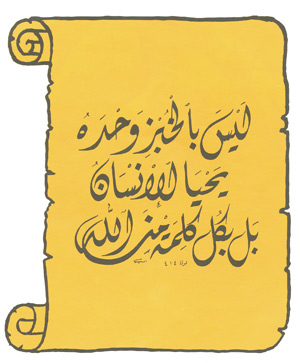 لَيْسَ بِالْخُبْزِ وَحْدَهُ
يَحْيَا الْإِنْسَانُ
بَل بِكُلِّ كَلِمَةٍ مِنَ اللّٰه
لوقا ٤:٤